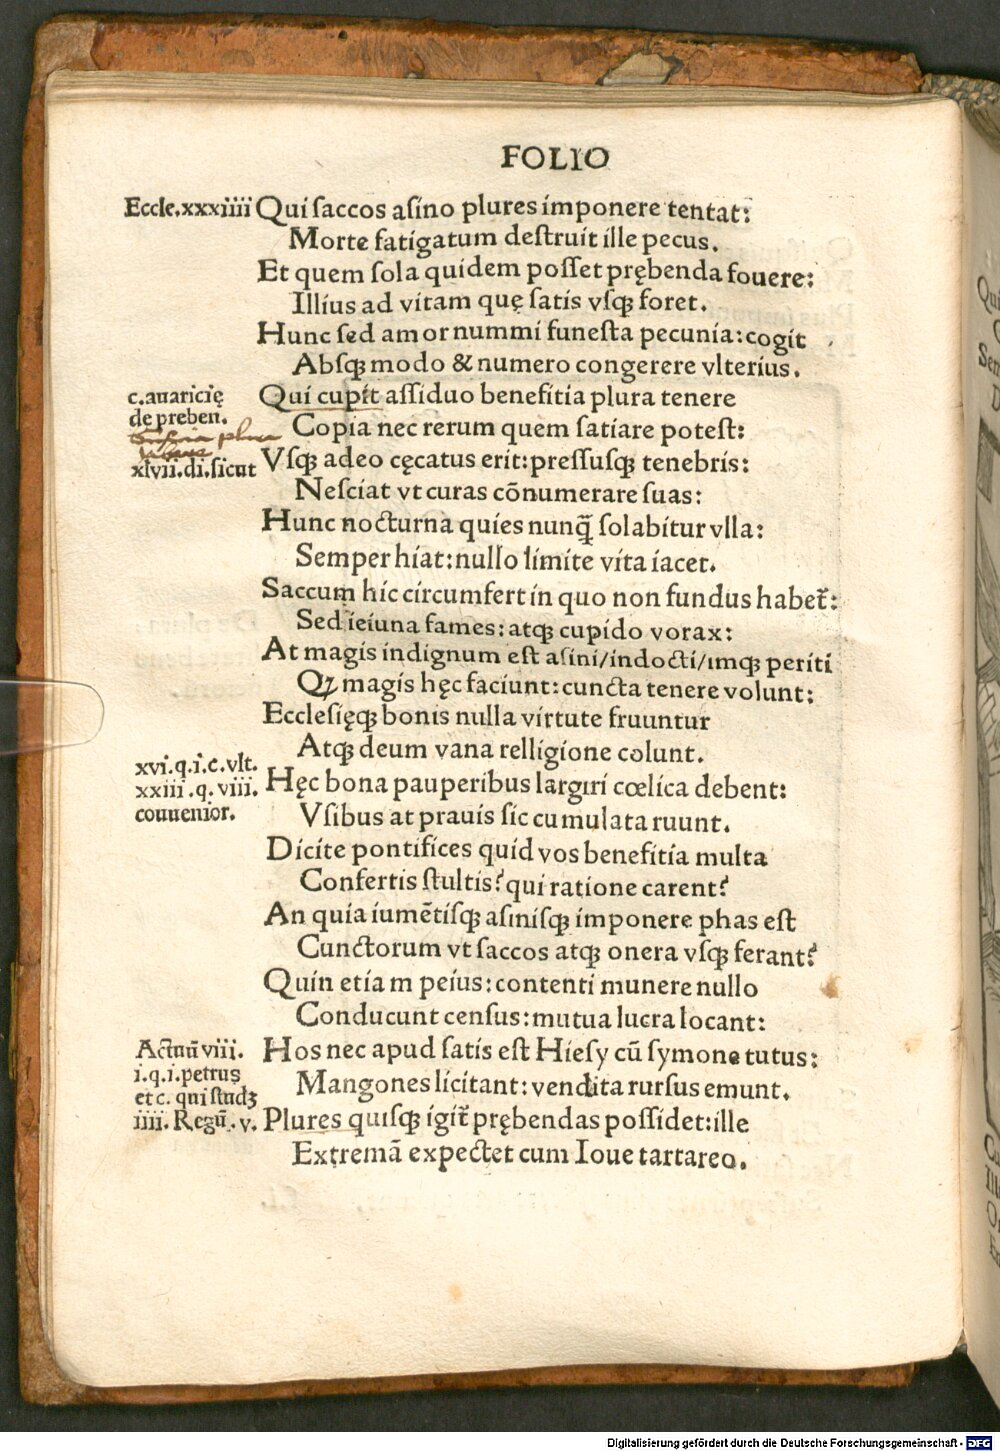 FOLIO
Eccle.xxxiiii
Qui saccos asino plures imponere tentat:
Morte fatigatum destruit ille pecus.
Et quem sola quidem posset prębenda fouere:
Illius ad vitam quę satis vsqꝫ foret.
Hunc sed amor nummi funesta pecunia: cogit
Absqꝫ modo & numero congerere vlterius.
c.auaricię
de preben.
xlvii.di.sicut
Qui cupit assiduo benefitia plura tenere
Copia nec rerum quem satiare potest:
Vsqꝫ adeo cęcatus erit: pressusqꝫ tenebris:
Nesciat vt curas cōnumerare suas:
Hunc nocturna quies nunq̄ solabitur vlla:
Semper hiat: nullo limite vita iacet.
Saccum hic circumfert in quo non fundus habet̄:
Sed ieiuna fames: atqꝫ cupido vorax:
At magis indignum est asini/indocti/imqꝫ periti
Qꝫ magis hęc faciunt: cuncta tenere volunt:
Ecclesięqꝫ bonis nulla virtute fruuntur
Atqꝫ deum vana relligione colunt.
xvi.q.i.c.vlt.
xxiii.q.viii.
conuenior.
Hęc bona pauperibus largiri cœlica debent:
Vsibus at prauis sic cumulata ruunt.
Dicite pontifices quid vos benefitia multa
Confertis stultis? qui ratione carent?
An quia iumētisqꝫ asinisqꝫ imponere phas est
Cunctorum vt saccos atqꝫ onera vsqꝫ ferant?
Quin etiam peius: contenti munere nullo
Conducunt census: mutua lucra locant:
Actuū viii.
i.q.i.petrus
et c. qui studꝫ
iiii. Regū. v.
Hos nec apud satis est Hiesy cū symone tutus:
Mangones licitant: vendita rursus emunt.
Plures quisqꝫ igit̄ prębendas possidet: ille
Extremā expectet cum Ioue tartareo.
Digitalisierung gefördert durch die Deutsche Forschungsgemeinschaft - DFG